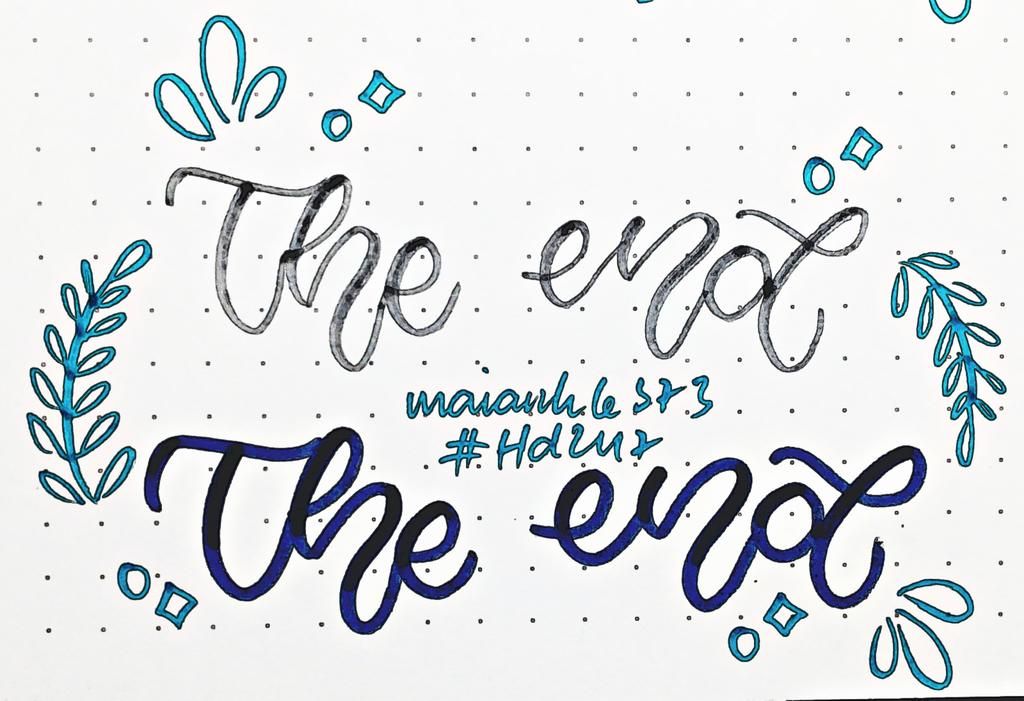 The end
maianh.le 373
#Hd2u7
The end